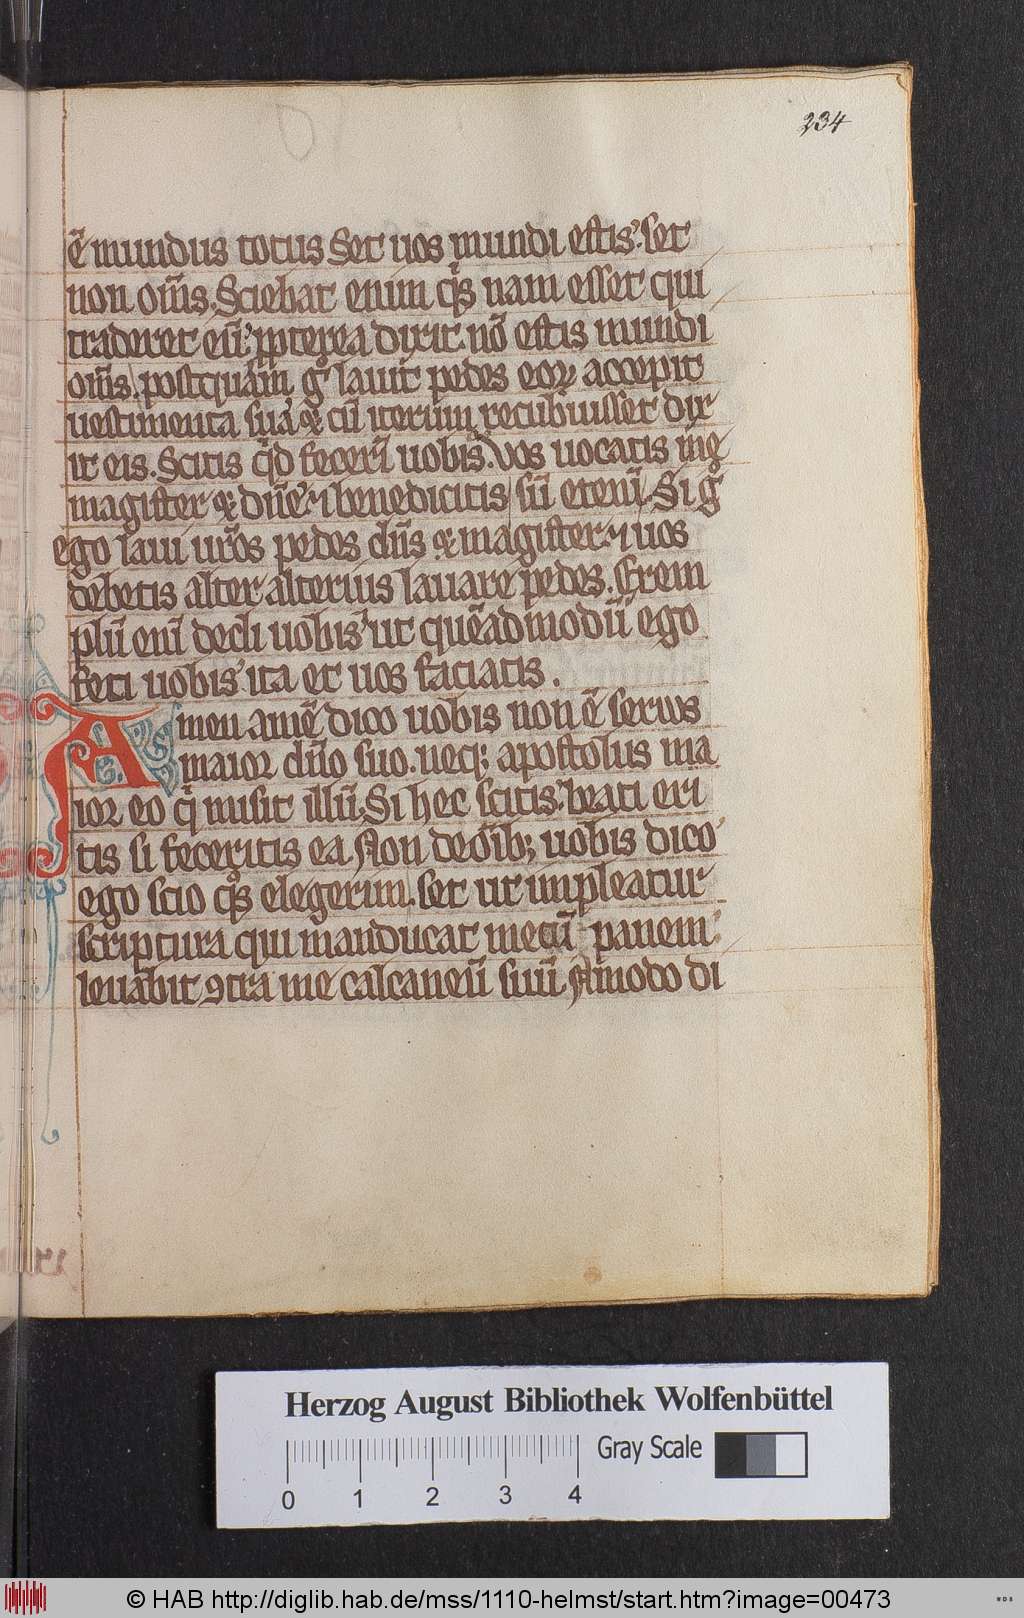 234
ē mundus totus Set uos mundi estis. set
non om̄s. Sciebat enim q̇s nam esset qui
traderet eū. ꝓpterea dixit. nō estis mundi
om̄s. postquam gͦ lauit pedes eoꝝ accepit
uestimenta sua. et cū iterum recubuisset dix
it eis. Scitis qͥd fecerī uobis. Vos uocatis me
magister et dn̄e. et benedicitis sū etenī. Si gͦ
ego laui ur̄os pedes dn̄s et magister. et uos
debetis alter alterius lauare pedes. Exem
plū enī dedi uobis ut quēadmodū ego
feci uobis ita et uos faciatis.
Amen amē dico uobis non ē seruus
maior dn̄o suo. neqꝫ apostolus ma
ior eo qͥ misit illū. Si hec scitis beati eri
tis si feceritis ea. Non de oībꝫ uobis dico
ego scio qͦs elegerim. set ut impleatur
scriptura qui manducat mecū panem
leuabit ꝯtra me calcaneū suū Amodo di
Herzog August Bibliothek Wolfenbüttel
Gray Scale
0 1 2 3 4
© HAB http://diglib.hab.de/mss/1110-helmst/start.htm?image=00473